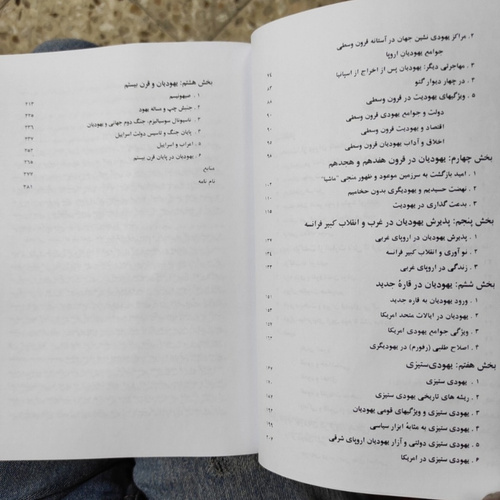 ۲. مراکز یهودی نشین جهان در آستانه قرون وسطی
جوامع یهودیان اروپا
۳. مهاجرتی دیگر: یهودیان پس از اخراج از اسپانیا ۷۴
۴. در چهار دیوار گتو ۸۲
۵. ویژگیهای یهودیت در قرون وسطی ۸۷
دولت و جوامع یهودی قرون وسطی
اقتصاد و یهودیت قرون وسطی
اخلاق و آداب یهودیان قرون وسطی ۹۶
بخش چهارم: یهودیان در قرون هفدهم و هجدهم
۱. امید بازگشت به سرزمین موعود و ظهور منجی "ماشیا" ۱۰۲
۲. نهضت حسیدیم و یهودیگری بدون خاخامیم ۱۱۰
۳. بدعت گذاری در یهودیت ۱۱۵
بخش پنجم: پذیرش یهودیان در غرب و انقلاب کبیر فرانسه
۱. پذیرش یهودیان در اروپای غربی ۱۲۷
۲. نو آوری و انقلاب کبیر فرانسه ۱۳۴
۳. زندگی در اروپای غربی ۱۳۳
بخش ششم: یهودیان در قارهٔ جدید
۱. ورود یهودیان به قاره جدید ۱۴۱
۲. یهودیان در ایالات متحد امریکا
۳. ویژگی جوامع یهودی امریکا
۴. اصلاح طلبی (رفورم) در یهودیگری
بخش هفتم: یهودی‌ستیزی ۱۶۷
۱. یهودی ستیزی
۲. ریشه های تاریخی یهودی ستیزی
۳. یهودی ستیزی و ویژگیهای قومی یهودیان ۱۹۲
۴. یهودی ستیزی به مثابهٔ ابزار سیاسی ۱۹۹
۵. یهودی ستیزی دولتی و آزار یهودیان اروپای شرقی ۲۰۶
۶. یهودی ستیزی در امریکا
بخش هشتم: یهودیان و قرن بیستم
۱. صهیونیسم ۲۱۳
۲. جنبش چپ و مساله یهود ۲۲۵
۳. ناسیونال سوسیالیزم، جنگ دوم جهانی و یهودیان ۲۳۹
۴. پایان جنگ و تاسیس دولت اسراییل ۲۴۷
۵. اعراب و اسراییل ۲۵۳
۶. یهودیان در پایان قرن بیستم ۲۶۵
منابع ۲۷۷
نام نامه ۲۸۱